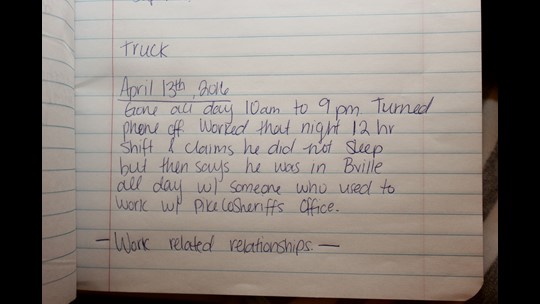 truck
April 13th, 2016
Gone all day 10am to 9pm Turned
phone off. Worked that night 12 hr
shift & claims he did not sleep
but then says he was in Bville
all day w/ someone who used to
work w/ Pike Co Sheriffs Office.
- Work related relationships. -